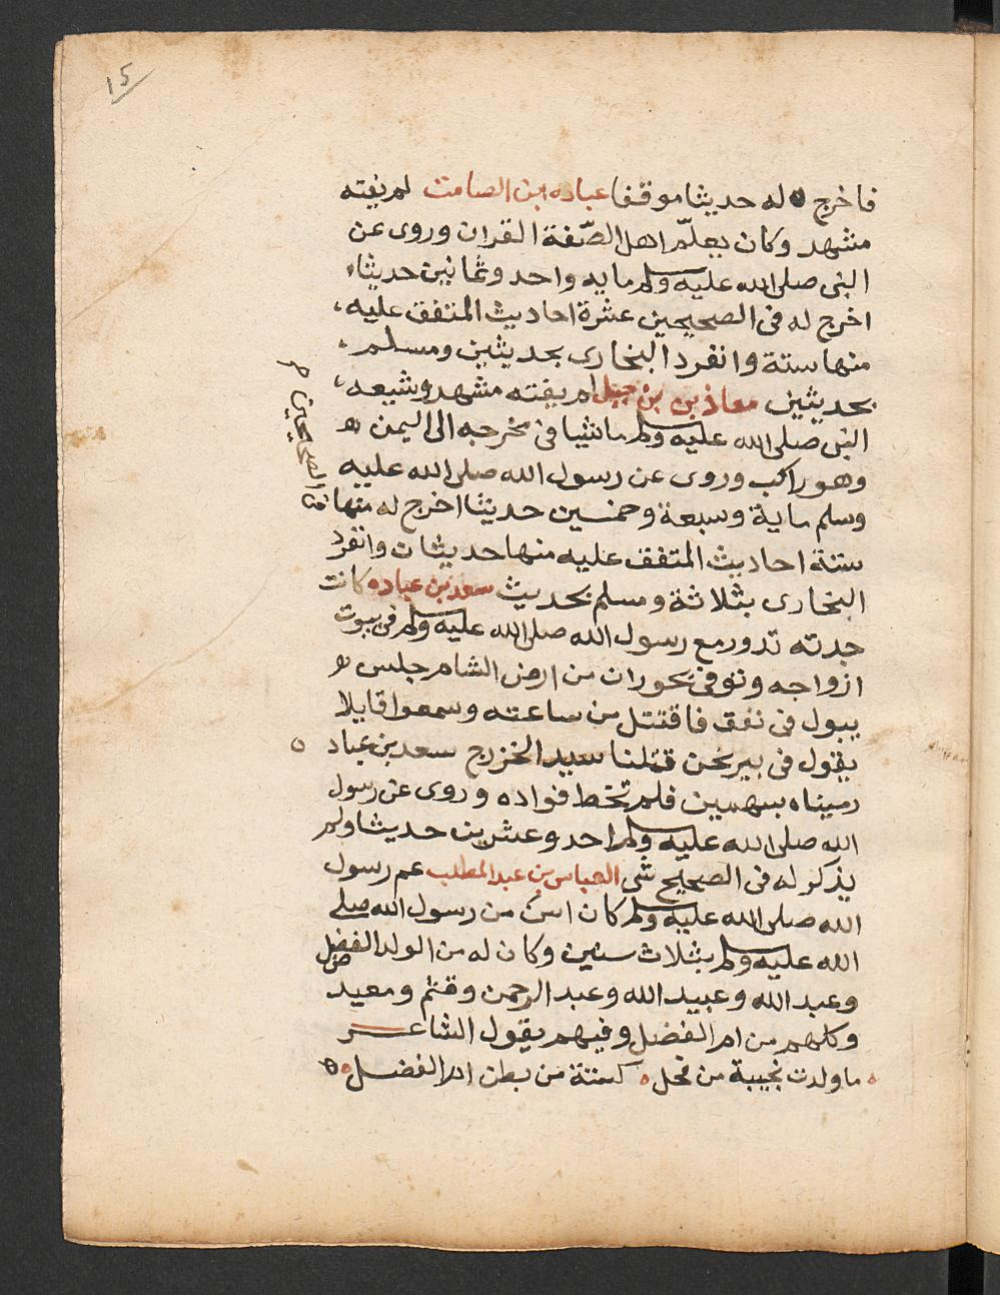 15
فاخرج له حديثا موقفا عباده ابن الصامت لم يفته
مشهد وكان يعلّم اهل الصّفة القران وروى عن
النبى صلى الله عليه وسلم مايه واحد وثمانين حديثا
اخرج له فى الصحيحين عشرة احاديث المتفق عليه
منها ستة وانفرد البخارى بحديثين ومسلم
بحديثين معاذ بن بن جبل لم يفته مشهد وشيعه
النبى صلى الله عليه وسلم ماشيا فى مخرجه الى اليمن
وهو راكب وروى عن رسول الله صلى الله عليه
وسلم ماية وسبعة وخمسين حديثا اخرج له منها
فى الصحيحين
ستة احاديث المتفق عليه منها حديثان وانفرد
البخارى بثلاثة ومسلم بحديث سعد بن عباده كانت
جدته تدور مع رسول الله صلى الله عليه وسلم فى بيوت
ازواجه وتوفى بحوران من ارض الشام جلس
يبول فى نفق فاقتتل من ساعته وسمعوا قايلا
يقول فى بير نحن قتلنا سيد الخزرج سعد بن عباد
رميناه بسهمين فلم تخط فواده وروى عن رسول
الله صلى الله عليه وسلم احد وعشرين حديثا ولم
يذكر له فى الصحيح شى العباس بن عبد المطلب عم رسول
الله صلى الله عليه وسلم كان اسن من رسول الله صلى
الله عليه وسلم بثلاث سنين وكان له من الولد الفضل
وعبد الله وعبيد الله وعبد الرحمن وقثم ومعيد
وكلهم من ام الفضل وفيهم يقول الشاعر
ما ولدت نجيبة من فحل كستة من بطن ام الفضل